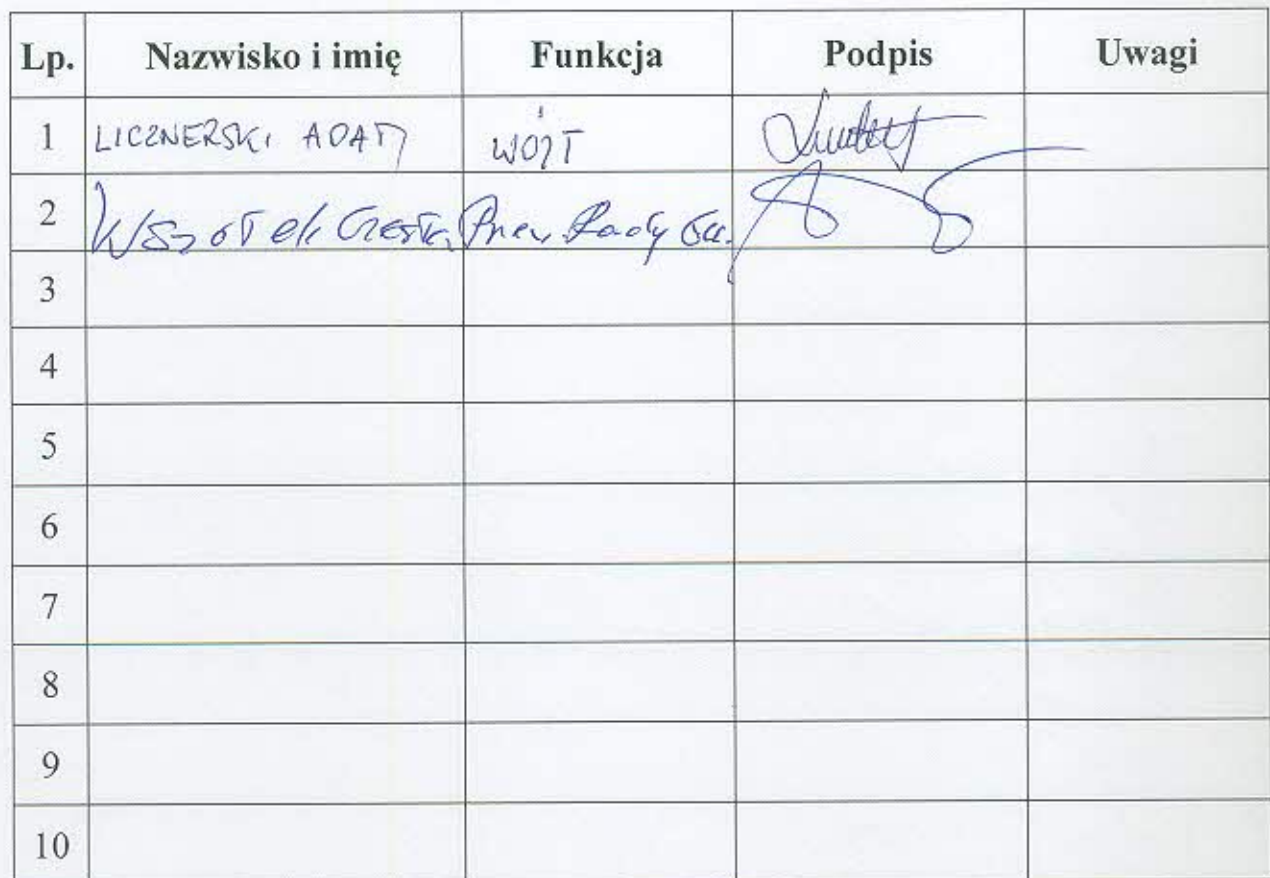 Lp. Nazwisko i imię Funkcja Podpis Uwagi
1 LICZNERSKI ADAM WÓJT
2 Wszołek Rady Gu.
3
4
5
6
7
8
9
10